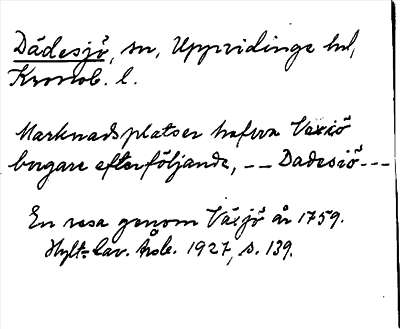 Dädesjö, sn, Uppvidinge hd,
Kronob. l.
Marknadsplatser hafva Vexiö
borgare efterföljande, -- Dadesiö ---
En resa genom Växjö år 1759.
Hylt-Cav. årsb. 1927, s. 139.